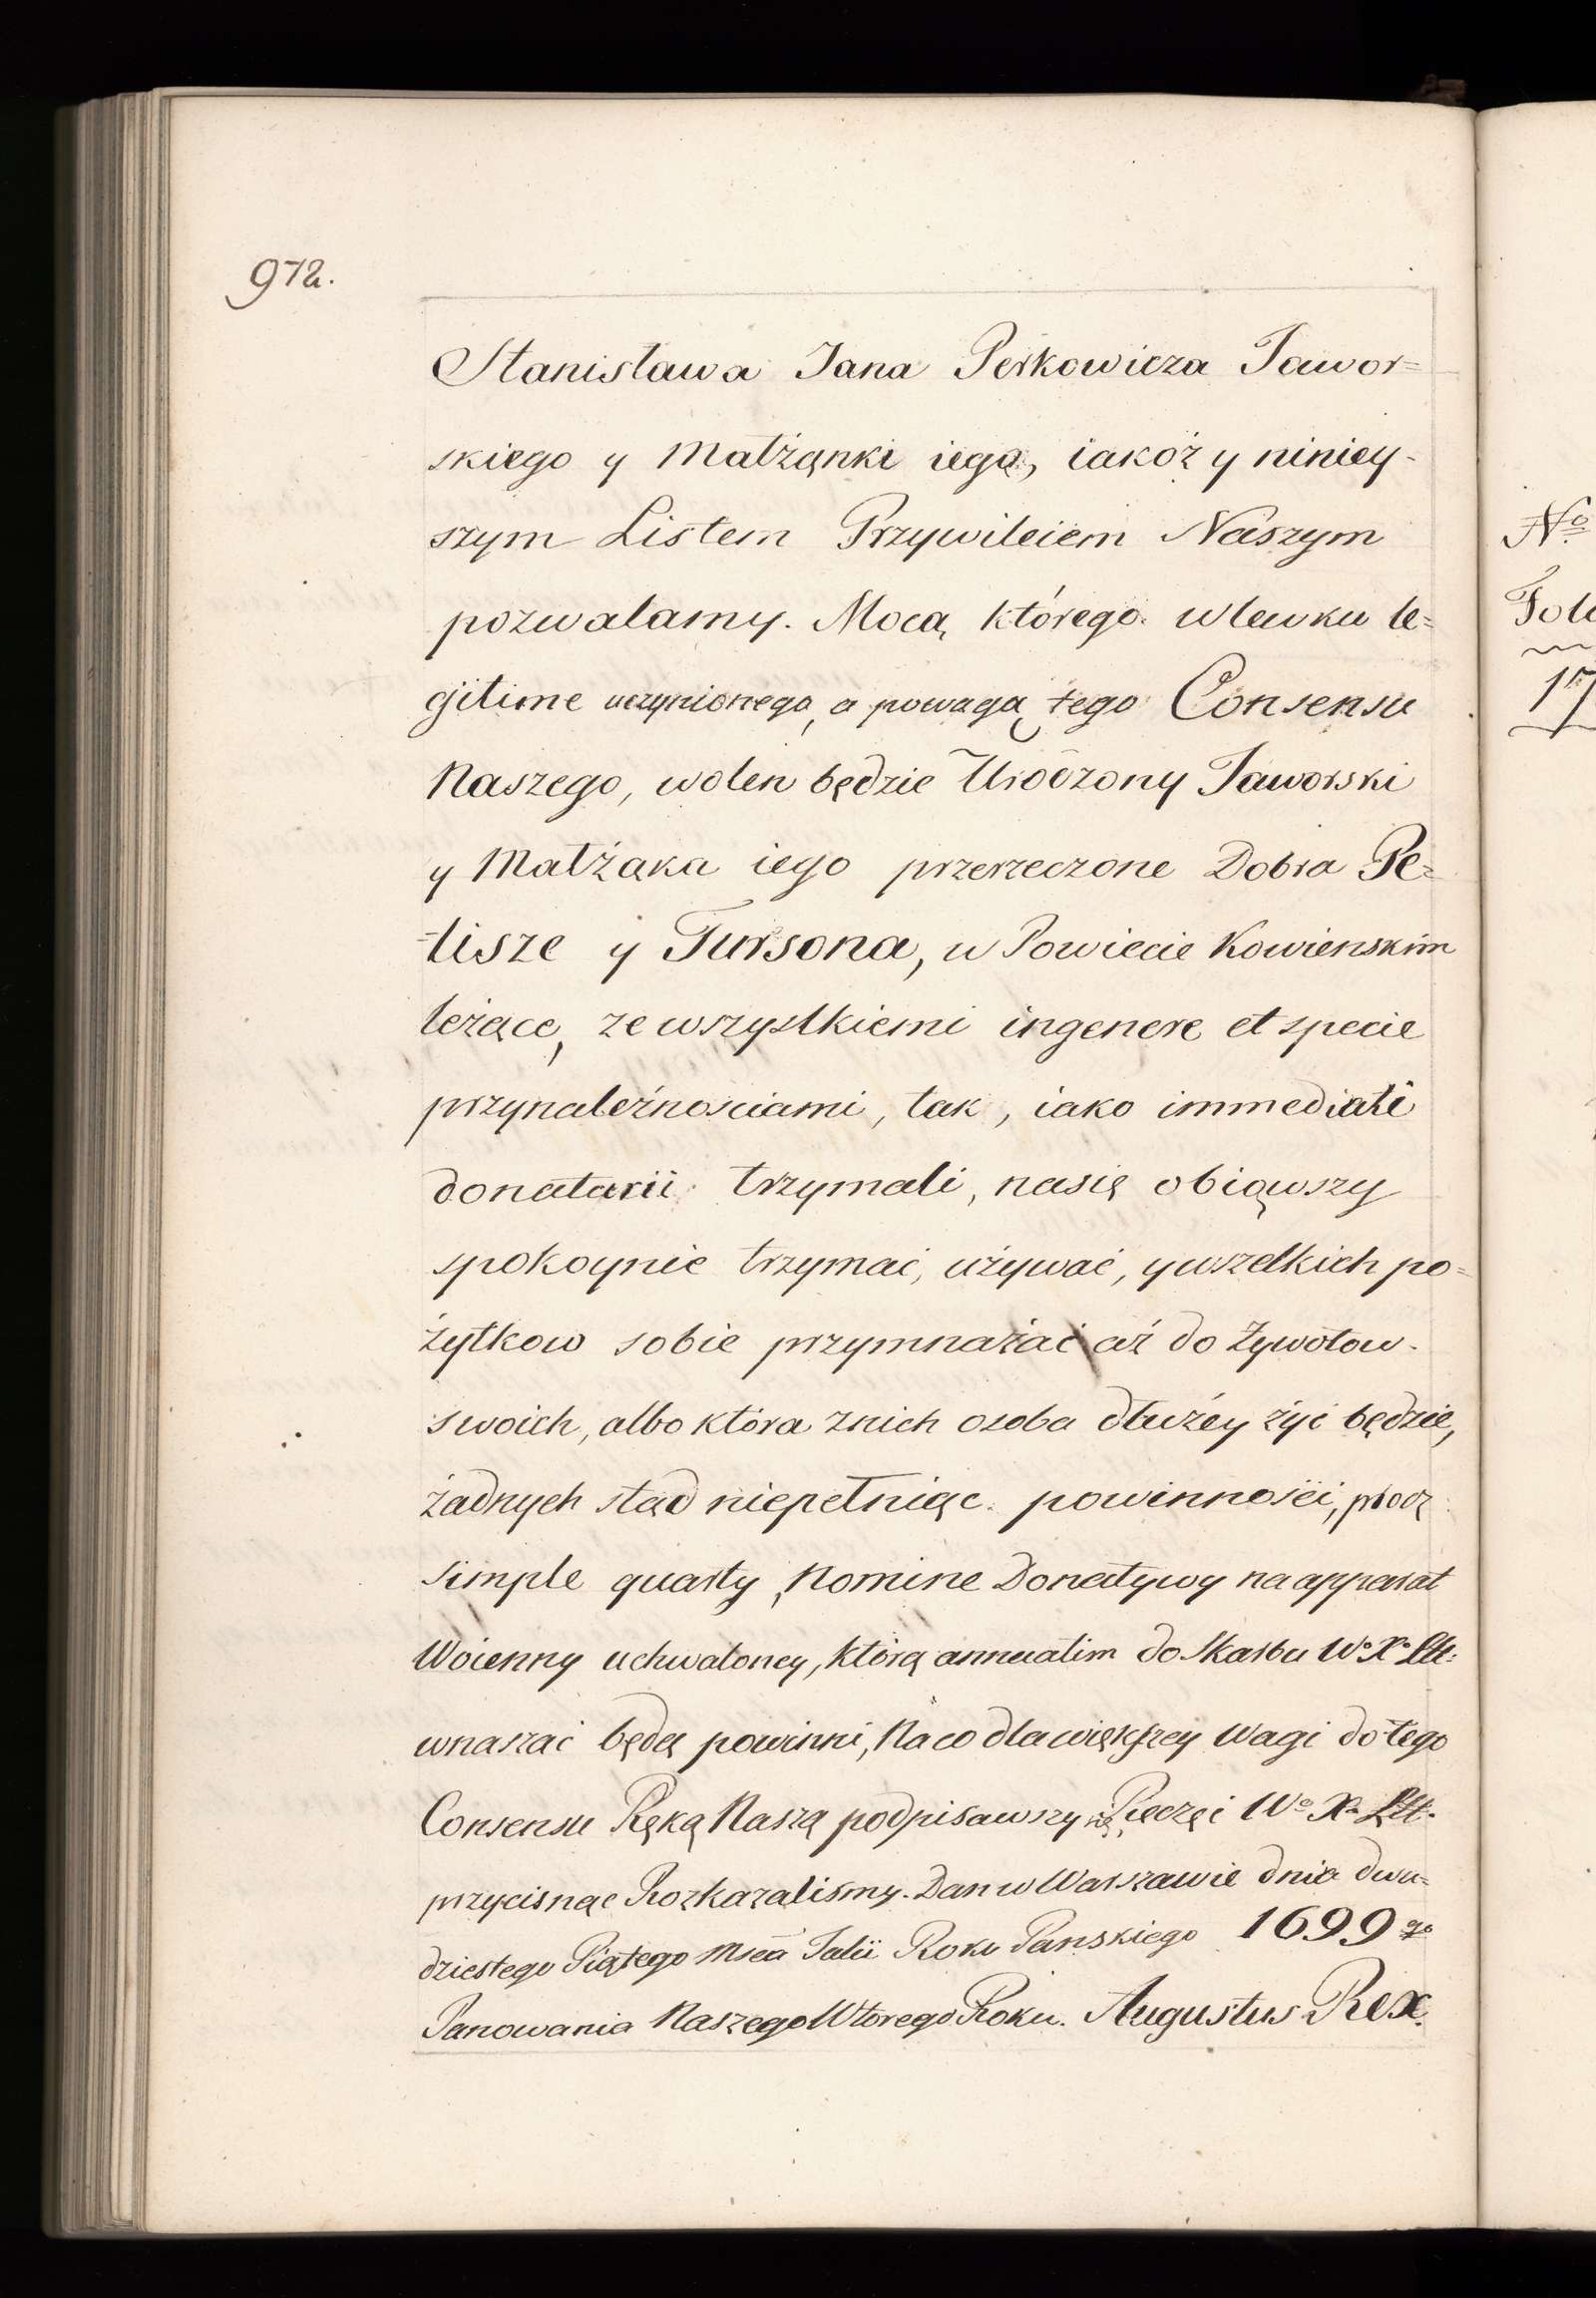 972.
Stanisława Jana Perkowicza Jawor=
skiego y Małżąnki iego, iakoż y niniey-
szym Listem Przywileiem Naszym
pozwalamy. Mocą którego wlewku le=
gitime uczynionego, a powagą tego Consensu
Naszego, wolen będzie Urodzony Jaworski
y Małżąka iego przerzeczone Dobra Pe=
=lisze y Tursona, w Powiecie Kowienskim
leżące, ze wszystkiemi ingenere et specie
przynależnosciami, tak, iako immediati
donatarii trzymali, nasię obiąwszy
spokoynie trzymać, używać, y wszelkich po=
żytkow sobie przymnażać aż do żywotow
swoich, albo która znich osoba dłużéy żyć będzie,
żadnych stąd niepełniąc powinności, procz
simple quarty, Nomine Donatywy na apparat
Woienny uchwaloney, którą annuatim do Skarbu Wo Xo Litt:
wnaszać będą powinni, Na co dla większey wagi do tego
Consensu Ręką Naszą podpisawszy się Pięczęć Wo Xa Litt.
przycisnąc Rozkazaliśmy. Dan w Warszawie dnia dwu=
dziestego Piątego Msca Julii Roku Panskiego 1699 go
Panowania Naszego Wtorego Roku. Augustus Rex.
No
17